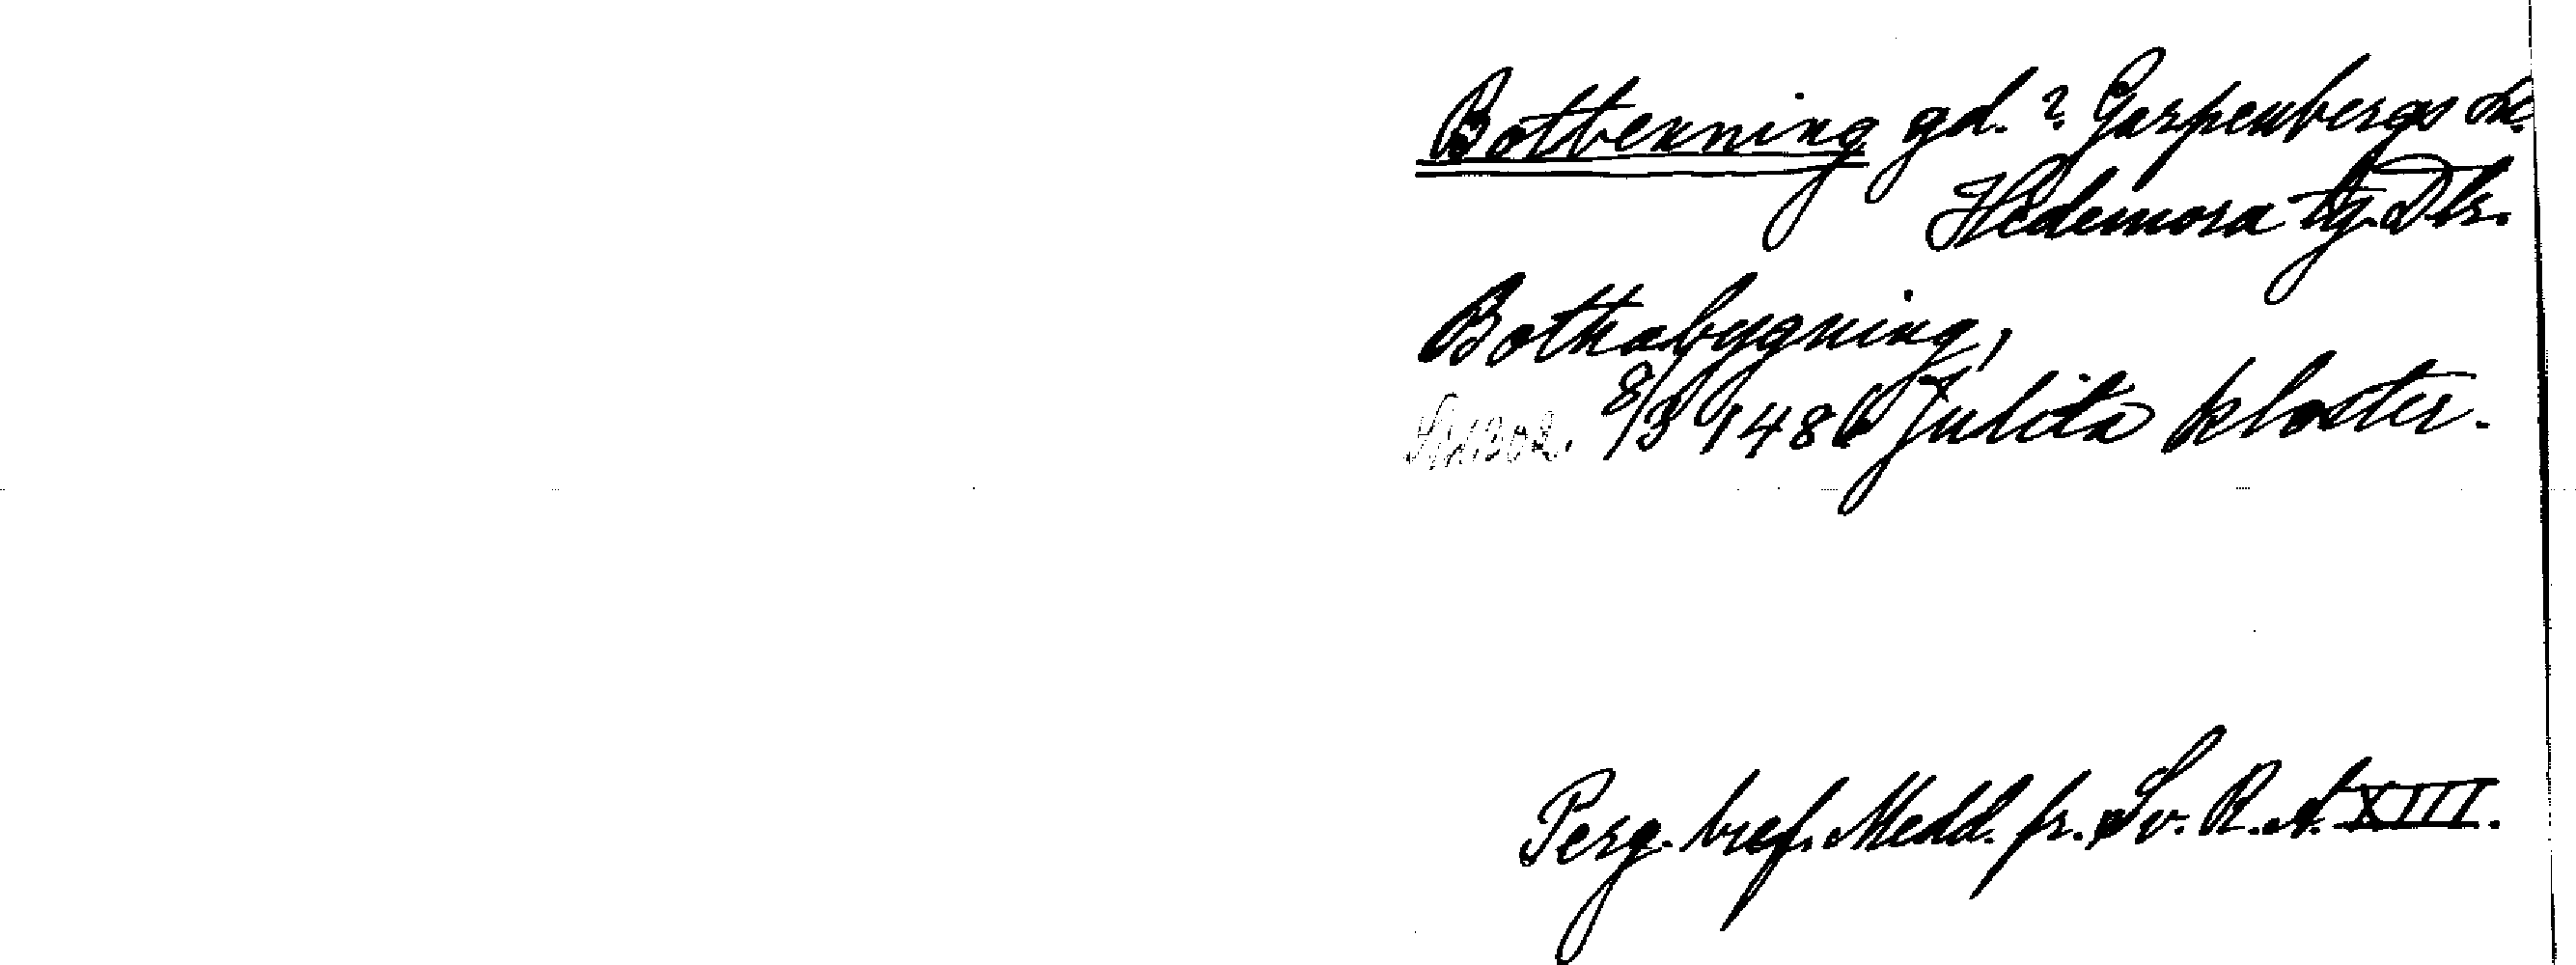 Botbenning gd.? Garpenbergs sn.
Hedemora tg. Dlr.
Bothabygning,
8/3 1486 Julita kloster.
Perg. bref. Medd. fr. Sv. R.A. XIII.